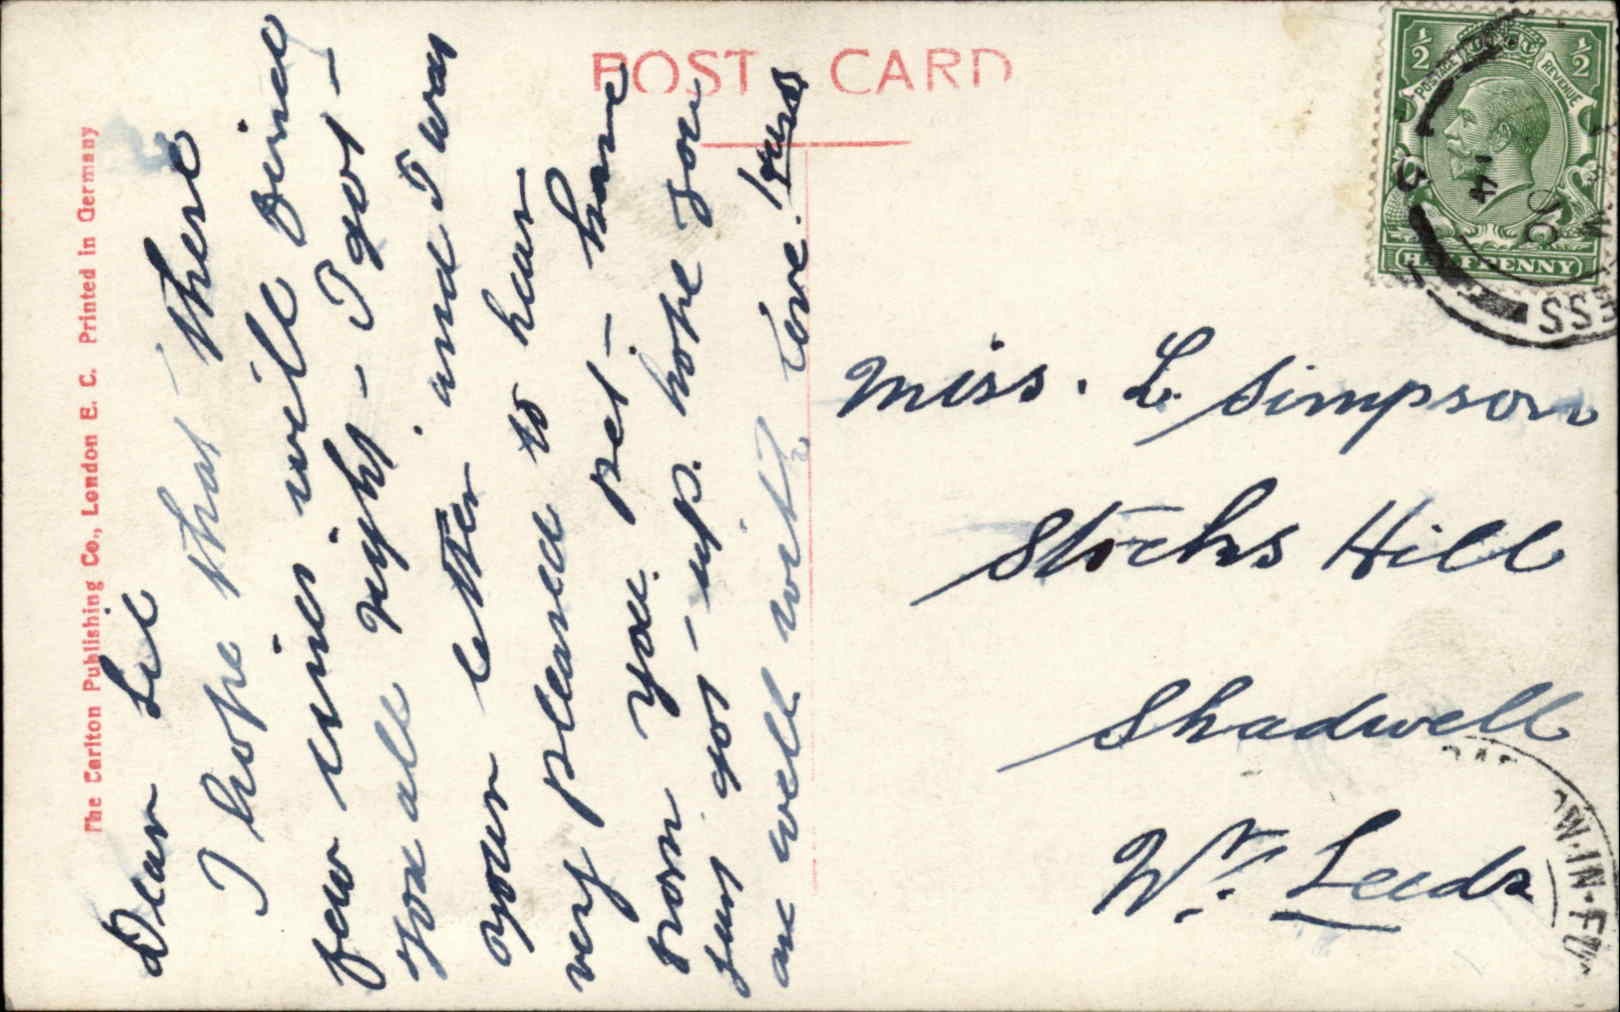 POST CARD
The Carlton Publishing Co., London E. C. Printed in Germany
Dear Lil
I hope that these
few lines will find
you all right - I got -
your letter and I was
very pleased to hear
from you pet - have
just got - up. hope you
are well with love.
½ ½
POSTAGE REVENUE
HALFPENNY
14
ESS
Miss. L. Simpson
Stocks Hill
Shadwell
Nr. Leeds
W-IN-FU